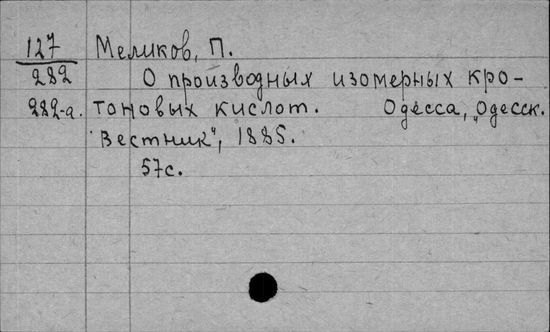 127 Меликов, П.
282 О производных изомерных кро-
282-а. тоновых кислот. Одесса, „Одесск.
Вестник", 1885.
57с.